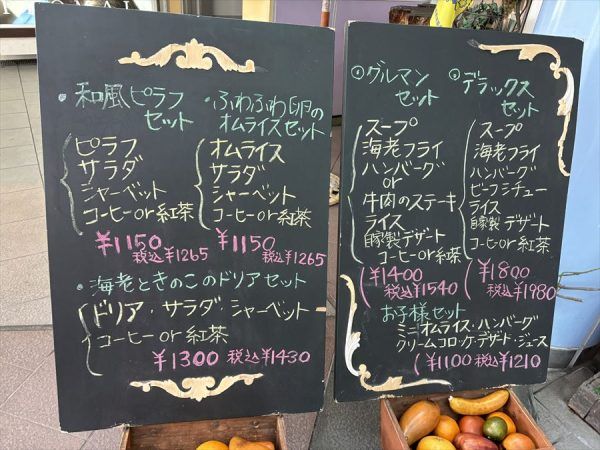 ・和風ピラフセット
ピラフ
サラダ
シャーベット
コーヒーor紅茶
¥1150
税込¥1265
・ふわふわ卵の
オムライスセット
オムライス
サラダ
シャーベット
コーヒーor紅茶
¥1150
税込¥1265
・海老ときのこのドリアセット
ドリア・サラダ・シャーベット
コーヒーor紅茶
¥1300 税込¥1430
・グルマン
セット
スープ
海老フライ
ハンバーグ
or
牛肉のステーキ
ライス
自家製デザート
コーヒーor紅茶
¥1400
税込¥1540
・デラックス
セット
スープ
海老フライ
ハンバーグ
ビーフシチュー
ライス
自家製デザート
コーヒーor紅茶
¥1800
税込¥1980
お子様セット
ミニオムライス・ハンバーグ
クリームコロッケ・デザート・ジュース
¥1100 税込¥1210